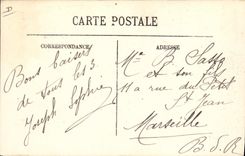 CARTE POSTALE
CORRESPONDANCE
ADRESSE
Bons baisers
de tous les 3
Joseph Sophie
Mme B.
et son fils
11 a rue du Petit
St Jean
Marseille
B. d. R